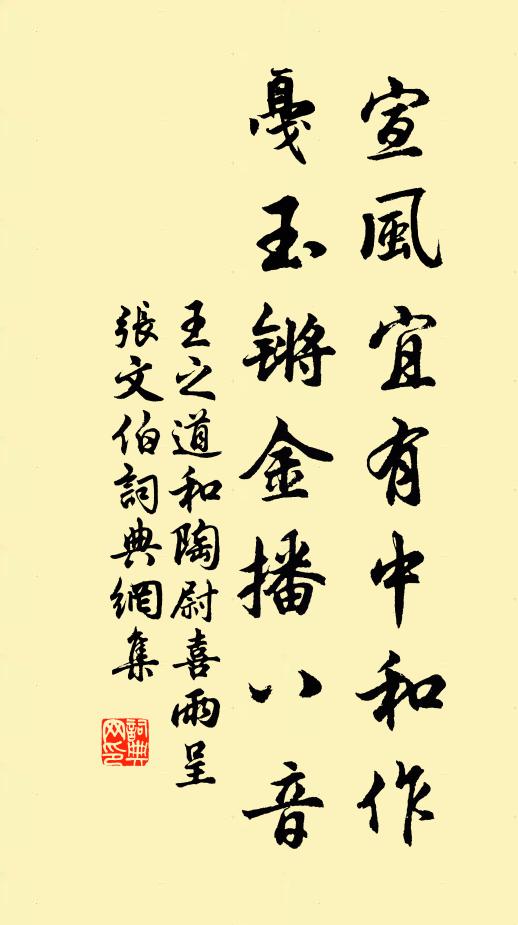 宣風宜有中和作
戞玉锵金播八音
王之道和陶尉喜雨呈
張文伯詞典網集
詞典
网印